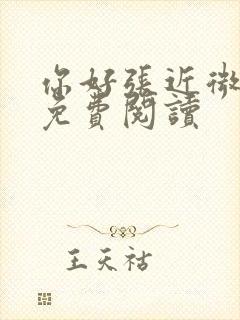 你好張近微
免費閱讀
王天祜